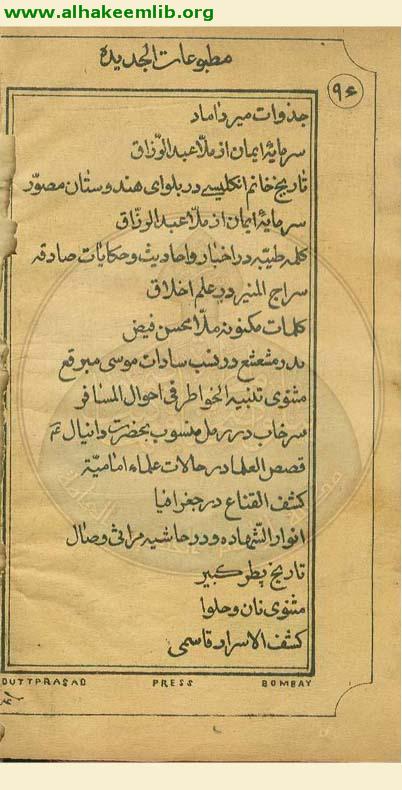 www.alhakeemlib.org
مطبوعات الجدیده
۹۶
جذوات میرداماد
سرمایهٔ ایمان از ملّا عبدالرّزاق
تاریخ خانم انگلیسے در بلوای هندوستان مصوّر
سرمایهٔ ایمان از ملّا عبدالرزّاق
کلمه طیّبه در اخبار و احادیث و حکایات صادقه
سراج المنیر در علم اخلاق
کلمات مکنونه ملّا محسن فیض
بدر مشعشع در نسب سادات موسی مبرقع
مثنوی تنبیه الخواطر فی احوال المسافر
سرخاب در رمل منسوب بحضرت دانیال ؑ
قصص العلما در حالات علماء امامیّة
کشف القناع در جغرافیا
انوار الشّهاده و در حاشیه مراثی وصال
تاریخ پطر کبیر
مثنوی نان و حلوا
کشف الاسرار قاسمی
DUTTPRASAD PRESS BOMBAY